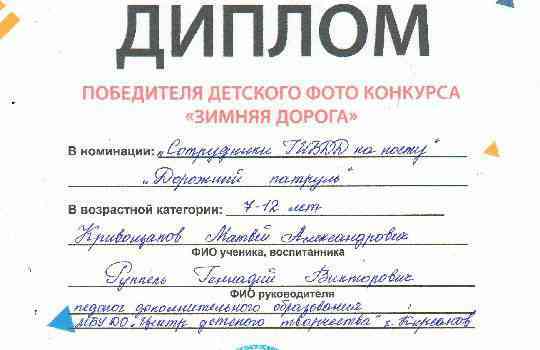 ДИПЛОМ
ПОБЕДИТЕЛЯ ДЕТСКОГО ФОТО КОНКУРСА
«ЗИМНЯЯ ДОРОГА»
В номинации: „Сотрудники ГИБДД на посту"
„Дорожный патруль"
В возрастной категории: 7-12 лет
Кривощапов Матвей Александрович
ФИО ученика, воспитанника
Руппель Геннадий Викторович
ФИО руководителя
педагог дополнительного образования
МБУ ДО "Центр детского творчества" г. Кирсанов